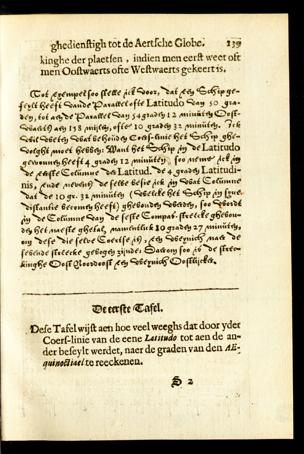 ghedienstigh tot de Aertsche Globe. 139
kinghe der plaetsen, indien men eerst weet oft
men Oostwaerts ofte Westwaerts gekeert is.
Tot exempel soo stelle ick voor, dat een Schip ge-
seylt heeft vande Parallel ofte Latitudo van 50 gra-
den, tot aen de Parallel van 54 graden 12 minuten Oost-
waerts aen 158 mijlen, ofte 10 graden 32 minuten. Ick
wil weten wat behouden Coers-linie het Schip ghe-
volght moet hebben: Want het Schip in de Latitudo
gewonnen heeft 4 graden 12 minuten, soo neme ick in
de eerste Columne des Latitud. de 4 graden Latitudi-
nis, ende neven de selve besie ick in wat Columne
dat de 10 gr. 32 minuten (welcke het Schip in
distantie bevonen heeft) ghevonden werden, soo wordt
in de Columne van de seste Compas-streecke ghevon-
den het naeste ghetal, namentlick 10 graden 27 minuten,
de strec-
kinghe Oost Noordoost
De eerste Tafel.
Dese Tafel wijst aen hoe veel weeghs dat door yder
Coers-linie van de eene Latitudo tot aen de an-
der beseylt werdet, naer de graden van den AE-
quinoctiael te reeckenen.
S 2